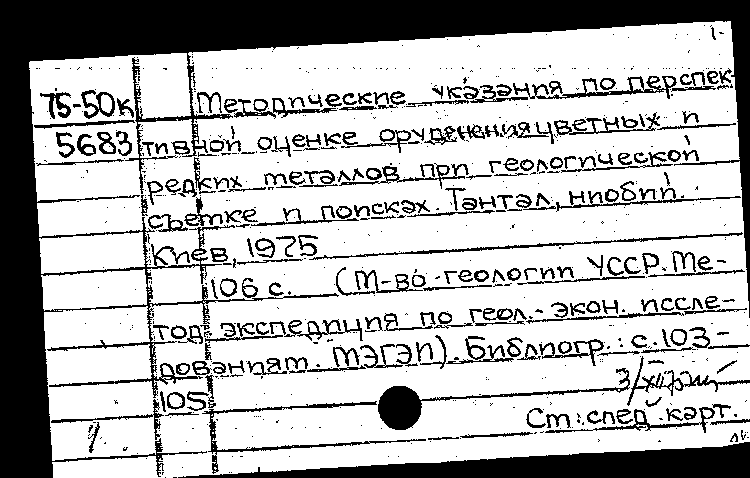 75-50к Методические указания по перспек-
5683 тивной оценке оруденения цветных и
редких металлов при геологической
съемке и поисках. Тантал, ниобий.
Киев, 1975
106 с. (М-во геологии УССР. Ме-
тод. экспедиция по геол.-экон. иссле-
дованиям. МЭГЭИ). Библиогр.: с. 103-
105
См: след. карт.